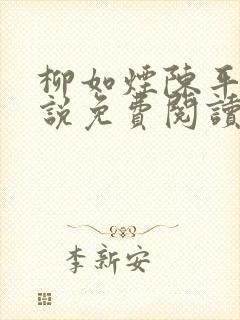 柳如煙陳平
說免費閱讀
李新安